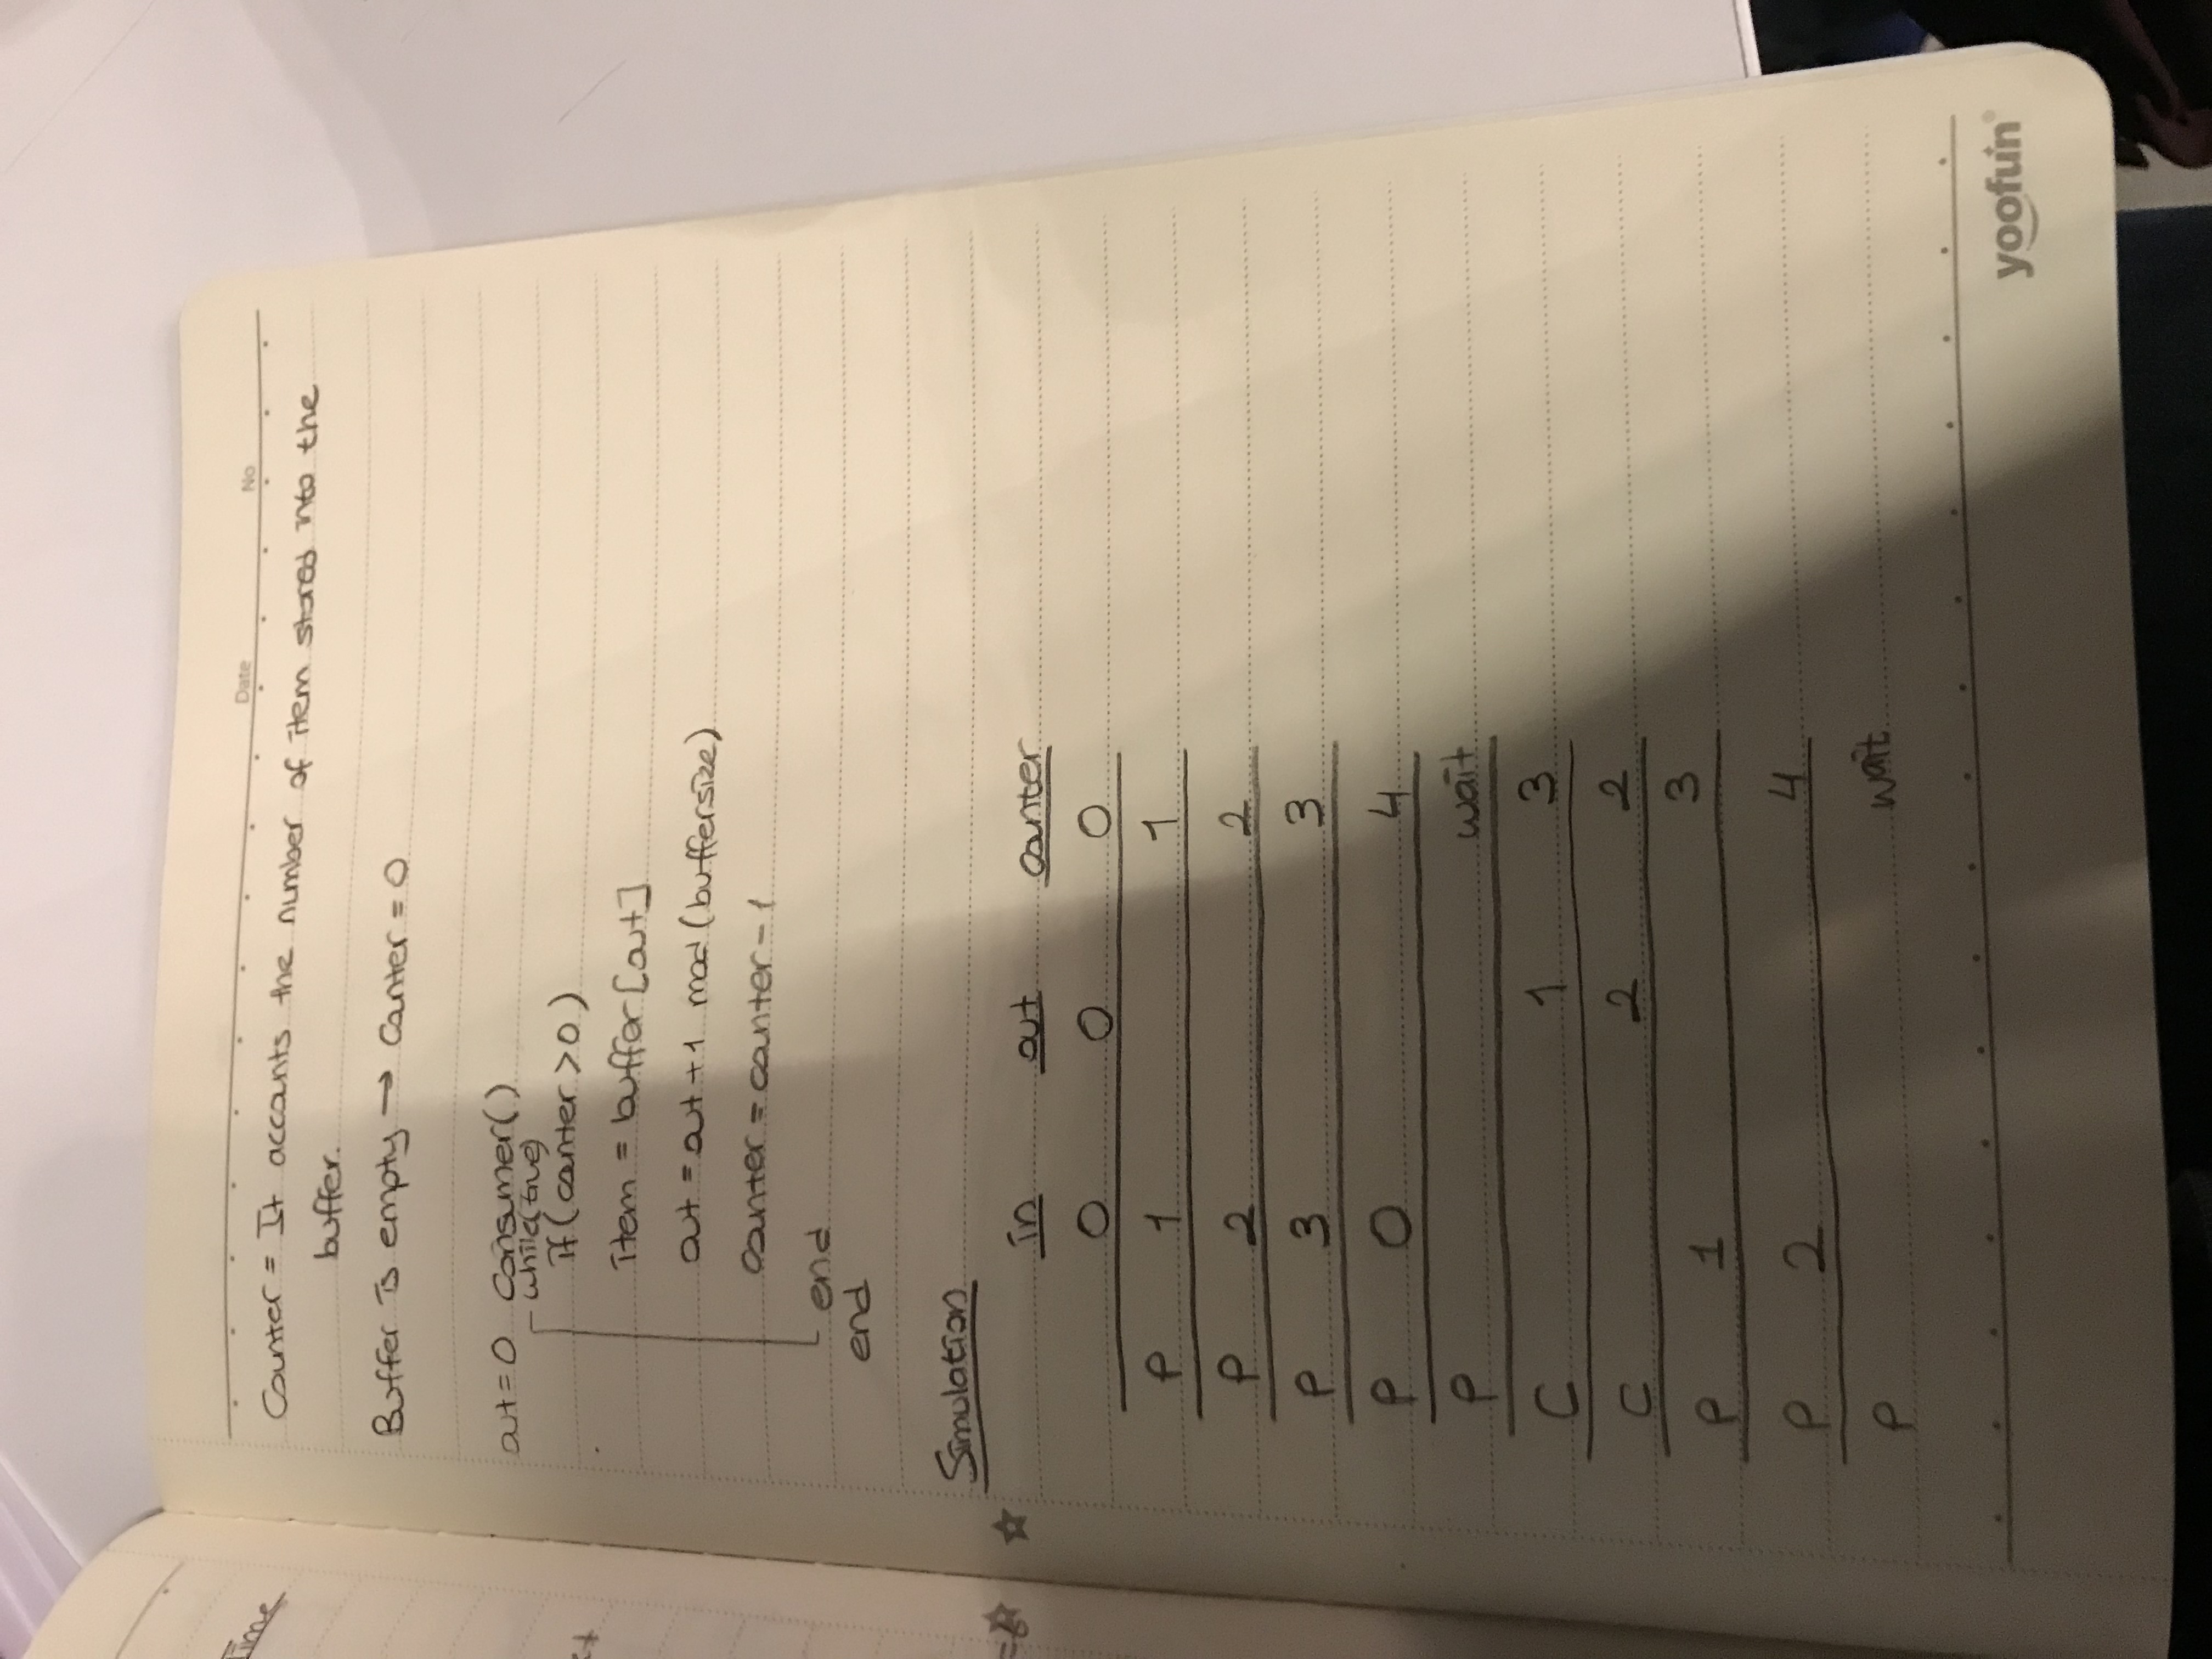 Time
Date No
Counter = It accounts the number of item stored into the
buffer.
Buffer is empty → Counter = 0
out=0 Consumer()
while(true)
if(counter >0)
item = buffer[out]
out = out +1 mod (buffersize)
counter = counter - 1
end
end
Simulation
in out counter
0 0 0
P 1 1
P 2 2
P 3 3
P 0 4
P wait
C 1 3
C 2 2
P 1 3
P 2 4
P wait
yoofun